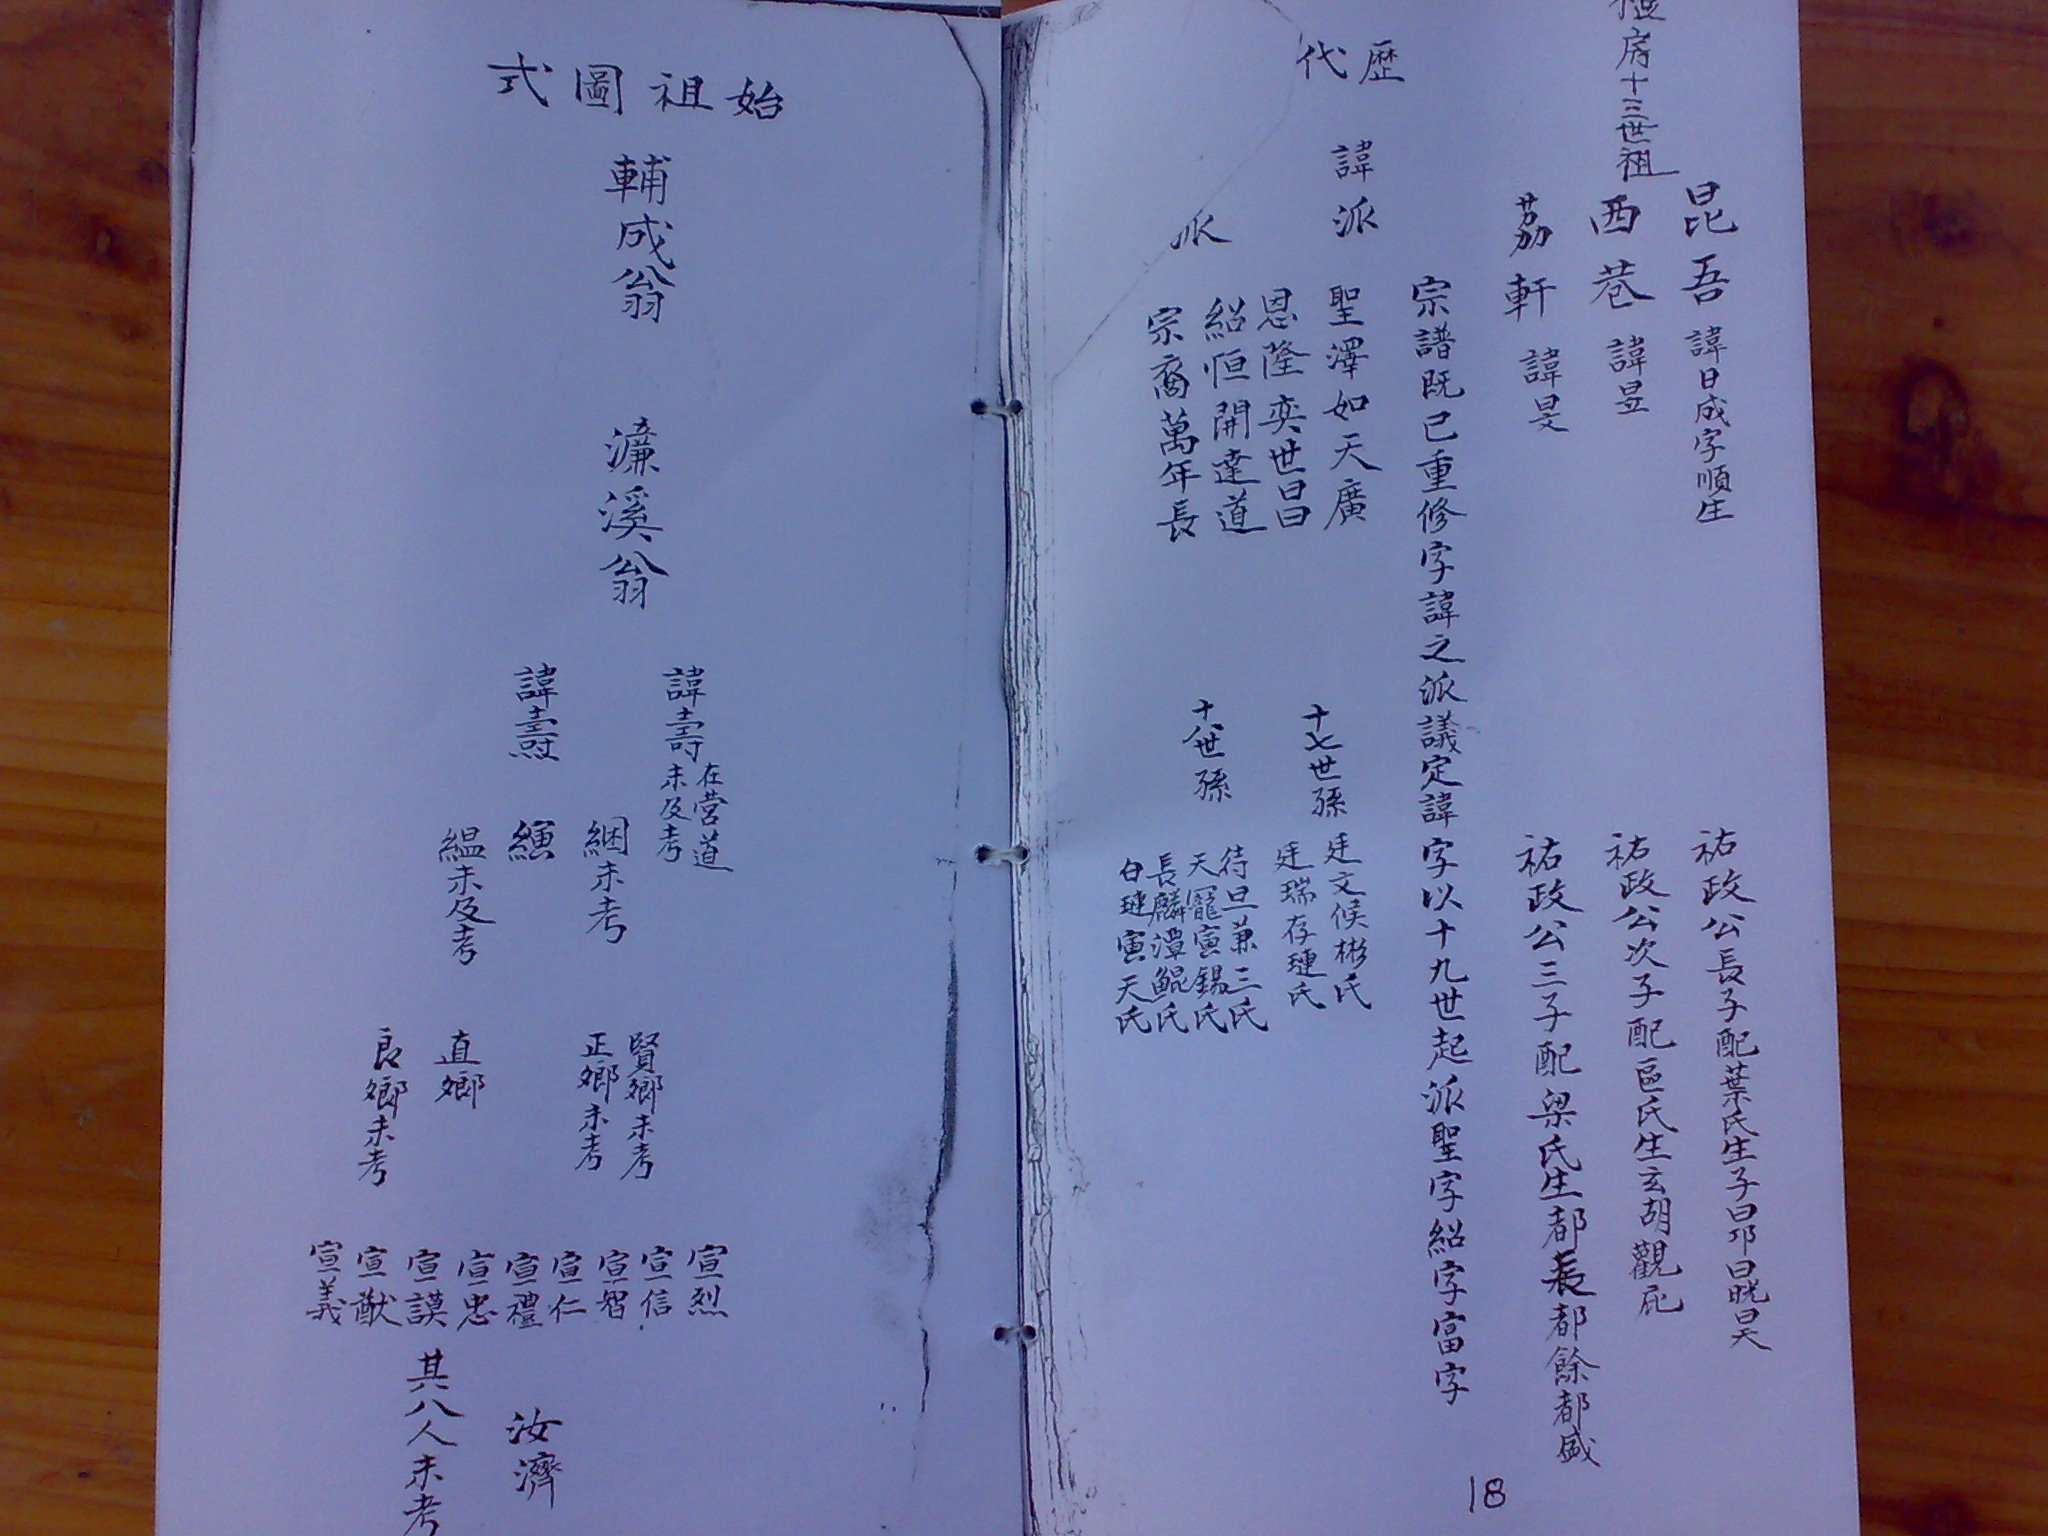 房十三世祖
昆吾 諱日成字順生 祐政公長子配葉氏生子曰昂曰晄曰昊
西巷 諱昱 祐政公次子配區氏生玄胡觀
荔軒 諱旻 祐政公三子配梁氏生都長都餘都盛
宗譜既已重修字諱之派議定諱字以十九世起派聖字紹字富字
歷代
諱派 聖澤如天廣
恩隆奕世日
派 紹恒開達道
宗裔萬年長
十七世孫 廷文候彬氏
廷瑞存璉氏
十八世孫 待旦兼三氏
天寵寅錫氏
長麟潭鯤氏
白璉寅天氏
18
始祖圖式
輔成翁 濂溪翁
諱壽 在营道未及考
諱燾
絪未考
縯
縕未及考
賢鄉未考
正鄉未考
直鄉
良鄉未考
宣烈
宣信
宣智
宣仁
宣禮
宣忠
宣謨
宣猷
宣義
汝濟
其八人未考